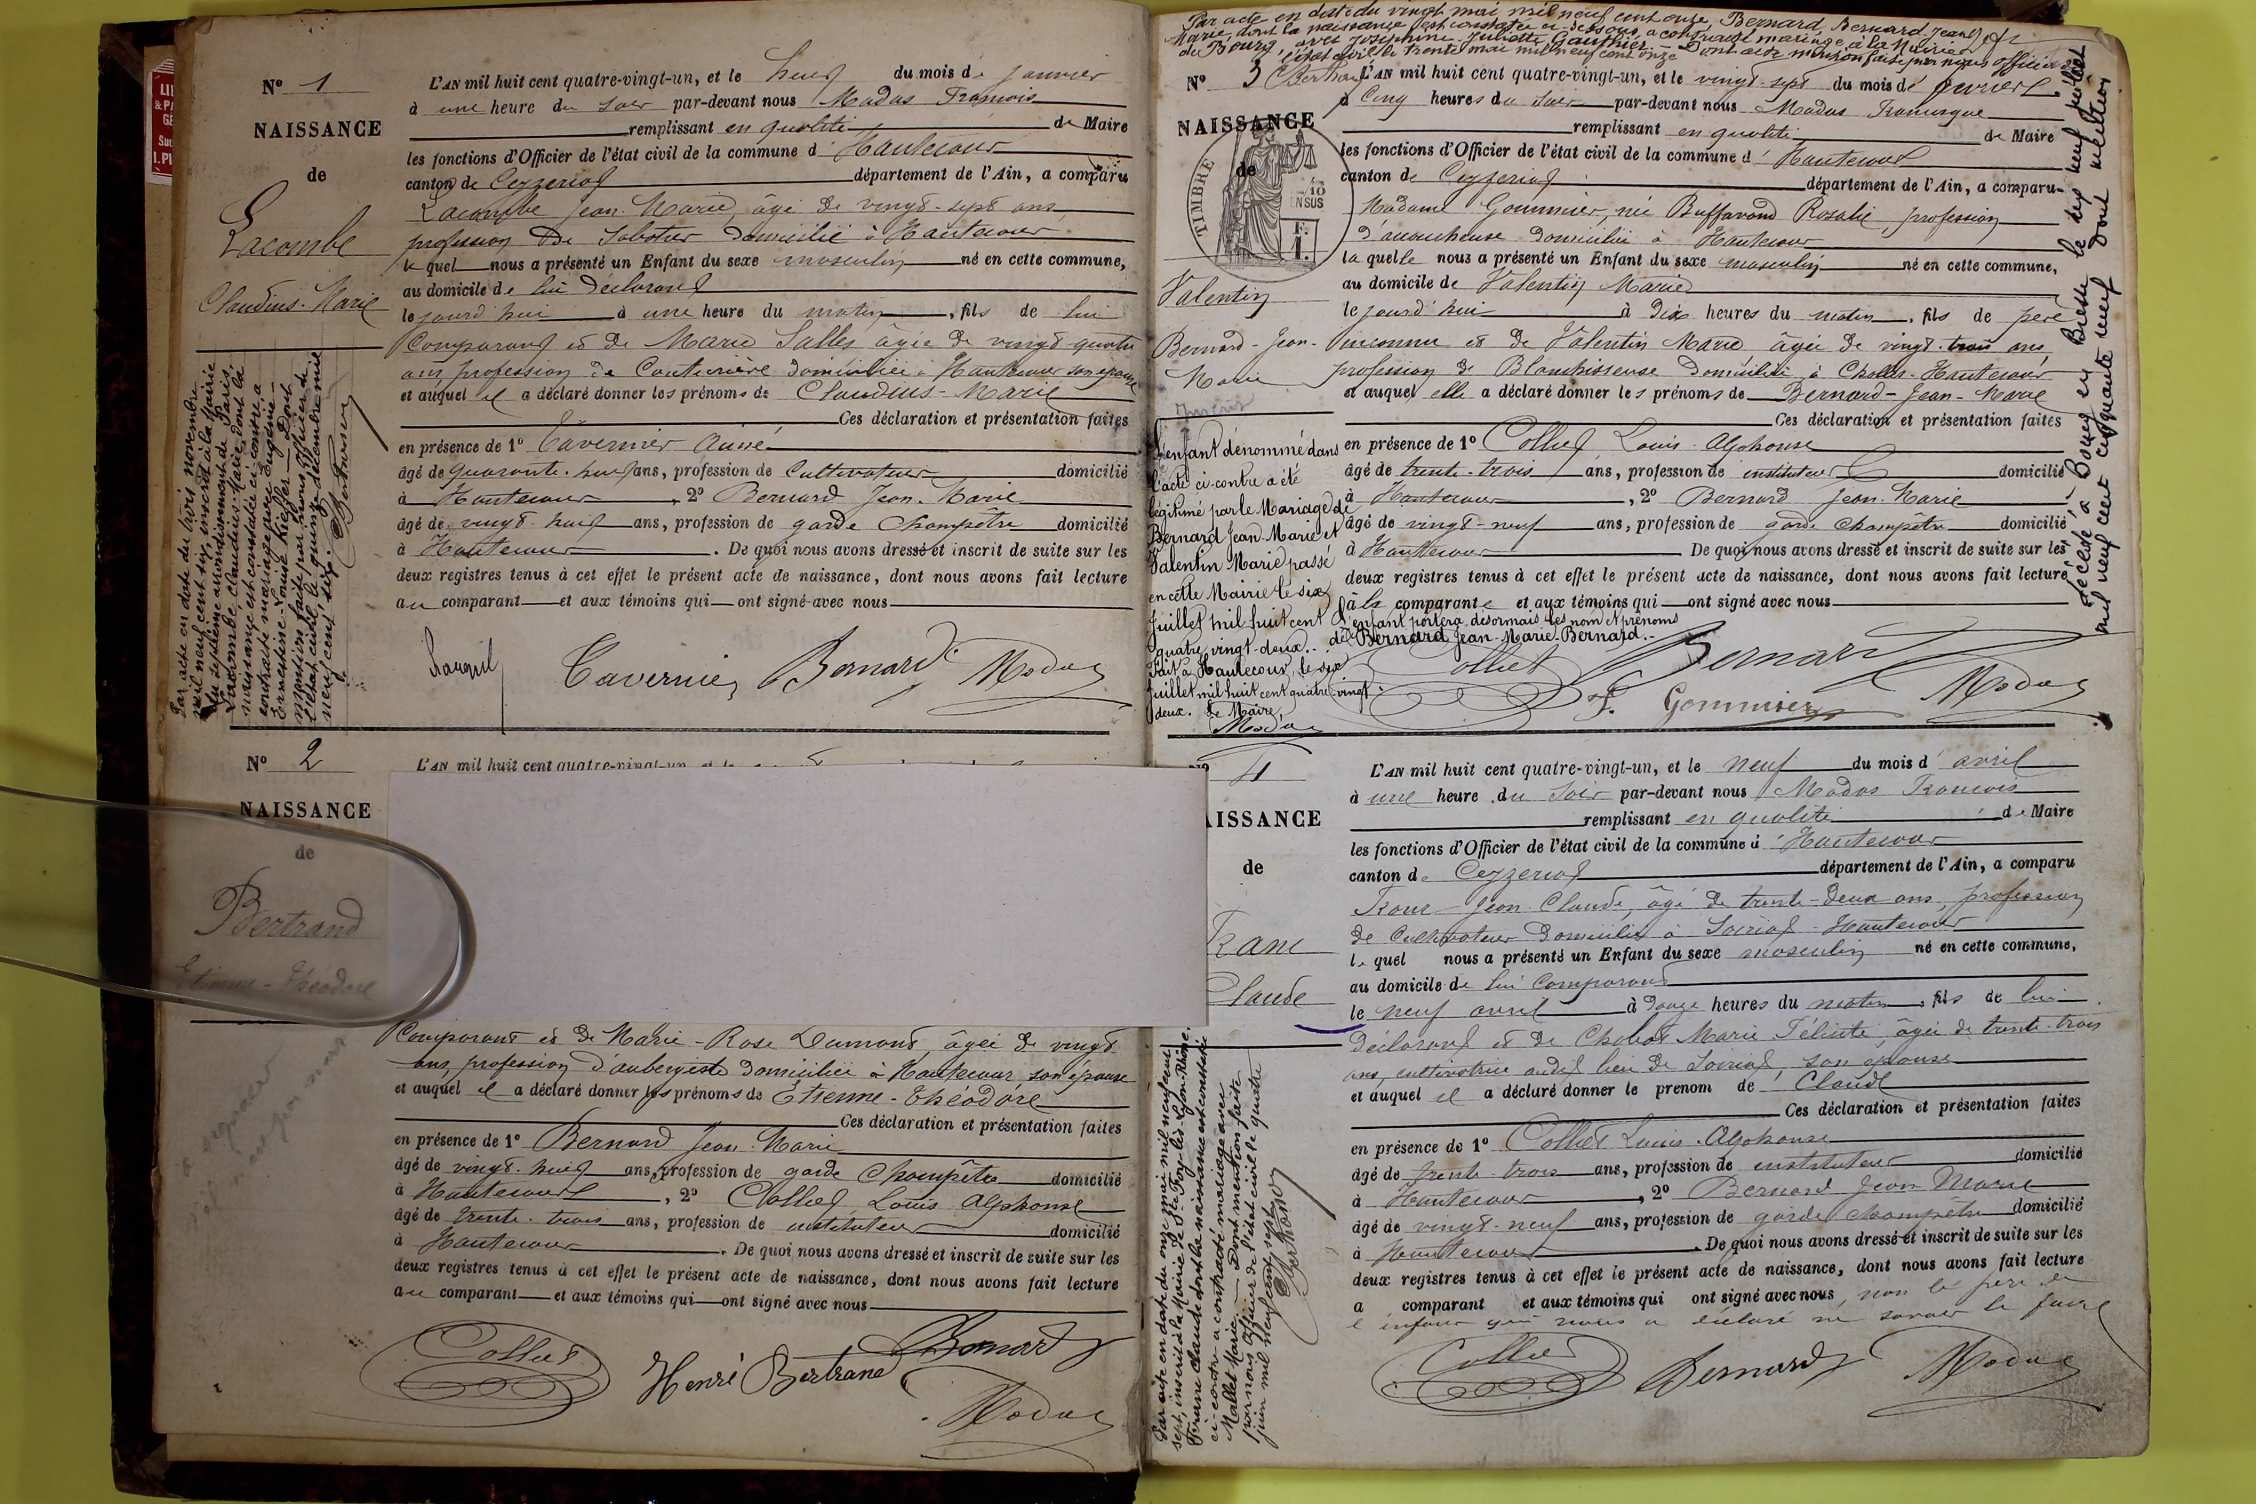 Nº 1
NAISSANCE
de
Lacombe
Claudius-Marie
Par acte en date du trois novembre
mil neuf cent six, inscrit à la Mairie
du septième arrondissement de Paris,
Lacombe, Claudius-Marie, dont la
naissance est constatée ci-contre, a
contracté mariage avec Eugénie-
Ernestine-Louise Kieffer. Dont
mention faite par nous, officier de
l'état civil, le quinze décembre mil
neuf cent six.
L'AN mil huit cent quatre-vingt-un, et le huit du mois de janvier
à une heure du soir par-devant nous Modas François
remplissant en qualité de Maire
les fonctions d'Officier de l'état civil de la commune d' Hautecour
canton de Ceyzeriat département de l'Ain, a comparu
Lacombe Jean-Marie, âgé de vingt-sept ans
profession de Sabotier domicilié à Hautecour
lequel nous a présenté un Enfant du sexe masculin né en cette commune,
au domicile de lui déclarant
le jourd'hui à une heure du matin, fils de lui
Comparant et de Marie Salles âgée de vingt-quatre
ans profession de Couturière domiciliée à Hautecour son épouse
et auquel il a déclaré donner les prénoms de Claudius-Marie
Ces déclaration et présentation faites
en présence de 1º Tavernier Aimé
âgé de quarante-huit ans, profession de Cultivateur domicilié
à Hautecour, 2º Bernard Jean-Marie
âgé de vingt-huit ans, profession de garde Champêtre domicilié
à Hautecour. De quoi nous avons dressé et inscrit de suite sur les
deux registres tenus à cet effet le présent acte de naissance, dont nous avons fait lecture
au comparant et aux témoins qui ont signé avec nous
Tavernier Bernard Modas
Nº 2
NAISSANCE
de
Bertrand
Etienne-Théodore
L'AN mil huit cent quatre-vingt-un
Comparant et de Marie-Rose Dumont, âgée de vingt
ans, profession d'aubergiste domiciliée à Hautecour, son épouse
et auquel il a déclaré donner les prénoms de Etienne-Théodore
Ces déclaration et présentation faites
en présence de 1º Bernard Jean-Marie
âgé de vingt-huit ans, profession de garde Champêtre domicilié
à Hautecourt, 2º Colliet Louis Alphonse
âgé de trente-trois ans, profession de instituteur domicilié
à Hautecour. De quoi nous avons dressé et inscrit de suite sur les
deux registres tenus à cet effet le présent acte de naissance, dont nous avons fait lecture
au comparant et aux témoins qui ont signé avec nous
Colliet Henri Bertrand Bernard
Modas
Par acte en date du vingt mai mil neuf cent onze, Bernard, Bernard-Jean-
Marie, dont la naissance est constatée ci-dessous, a contracté mariage à la Mairie
de Bourg, avec Joséphine-Juliette Gauthier. - Dont acte mention faite par nous officier de
l'état civil le trente mai mil neuf cent onze
Nº 3
NAISSANCE
de
TIMBRE
10
EN SUS
Valentin
Bernard-Jean-
Marie
L'enfant dénommé dans
l'acte ci-contre a été
légitimé par le Mariage de
Bernard Jean-Marie et
Valentin Marie passé
en cette Mairie le six
juillet mil huit cent
quatre-vingt-deux.
Fait à Hautecour, le six
juillet mil huit cent quatre-vingt-
deux. Le Maire,
Modas
L'AN mil huit cent quatre-vingt-un, et le vingt-sept du mois de fevrier
à Cinq heures du soir par-devant nous Modas François
remplissant en qualité de Maire
les fonctions d'Officier de l'état civil de la commune d' Hautecour
canton de Ceyzeriat département de l'Ain, a comparu
Madame Gommier, née Buffavand Rosalie, profession
d'accoucheuse domiciliée à Hautecour
laquelle nous a présenté un Enfant du sexe masculin né en cette commune,
au domicile de Valentin Marie
le jourd'hui à Dix heures du matin, fils de père
inconnu et de Valentin Marie, âgée de vingt-trois ans,
profession de Blanchisseuse domiciliée à Hautecour
et auquel elle a déclaré donner les prénoms de Bernard-Jean-Marie
Ces déclaration et présentation faites
en présence de 1º Colliet Louis-Alphonse
âgé de trente-trois ans, profession de instituteur domicilié
à Hautecour, 2º Bernard Jean-Marie
âgé de vingt-neuf ans, profession de garde Champêtre domicilié
à Hautecour De quoi nous avons dressé et inscrit de suite sur les
deux registres tenus à cet effet le présent acte de naissance, dont nous avons fait lecture
à la comparante et aux témoins qui ont signé avec nous
L'enfant portera désormais les nom et prénoms
de Bernard Jean-Marie-Bernard.
Colliet Bernard
F. Gommier Modas
Décédé à Bourg en Bresse le dix neuf juillet
mil neuf cent cinquante neuf dont mention
Nº 4
NAISSANCE
de
Claude
Par acte en date du onze mai mil neuf cent
sept, inscrit à la Mairie de Ste-Foy-les-Lyon-Rhône,
Claude dont la naissance est constatée
ci-contre a contracté mariage avec
Mallet Marie. Dont mention faite
par nous officier de l'état civil le quatre
juin mil neuf cent sept
L'AN mil huit cent quatre-vingt-un, et le neuf du mois d' avril
à une heure du soir par-devant nous Modas François
remplissant en qualité de Maire
les fonctions d'Officier de l'état civil de la commune d' Hautecour
canton de Ceyzeriat département de l'Ain, a comparu
Jean-Claude, âgé de trente-deux ans, profession
de Cultivateur domicilié à Soiriat-Hautecour
lequel nous a présenté un Enfant du sexe masculin né en cette commune,
au domicile de lui Comparant
le neuf avril à douze heures du matin, fils de lui
Déclarant et de Marie Félicité, âgée de trente-trois
ans, cultivatrice audit lieu de Soiriat, son épouse
et auquel il a déclaré donner le prenom de Claude
Ces déclaration et présentation faites
en présence de 1º Colliet Louis-Alphonse
âgé de trente-trois ans, profession de instituteur domicilié
à Hautecour, 2º Bernard Jean Marie
âgé de vingt-neuf ans, profession de garde champêtre domicilié
à Hautecour. De quoi nous avons dressé et inscrit de suite sur les
deux registres tenus à cet effet le présent acte de naissance, dont nous avons fait lecture
a comparant et aux témoins qui ont signé avec nous, non le père de
l'enfant qui nous a déclaré ne savoir le faire
Colliet Bernard Modas